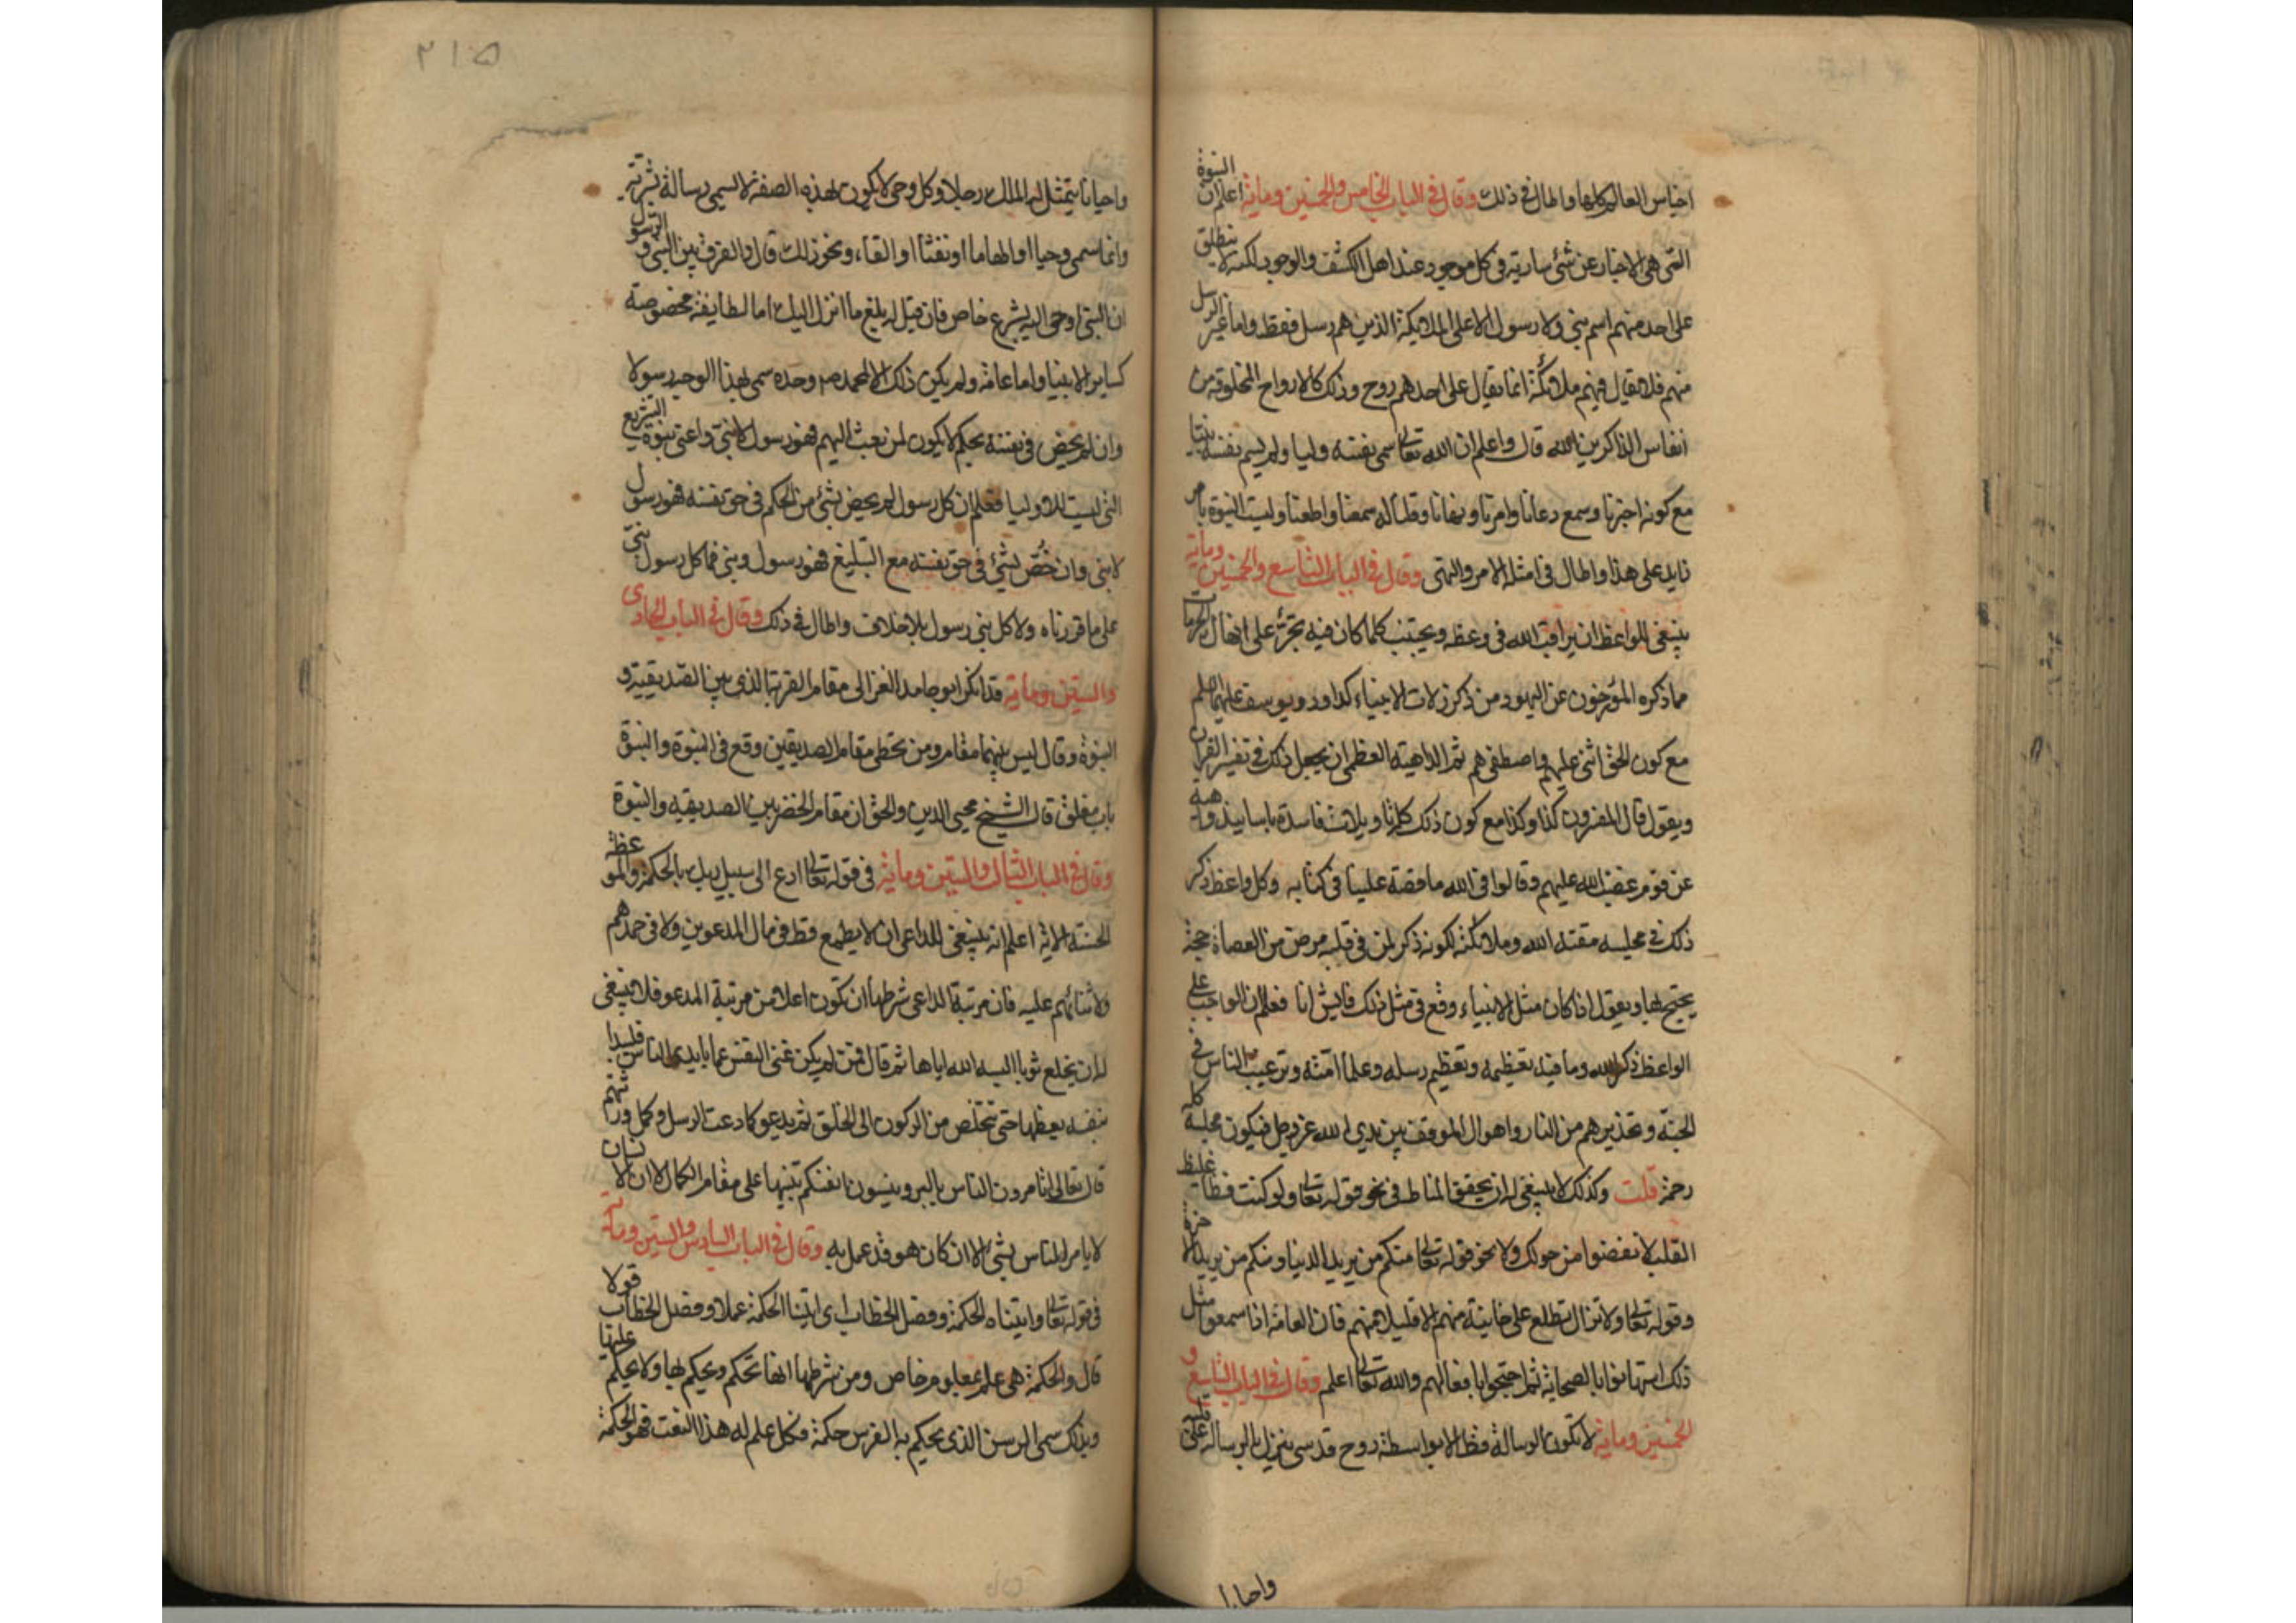 اجناس العالم كلها واطال في ذلك وقال في الباب الخامس والخمسين وماية اعلم ان النبوة
التي هي الاخبار عن شئ سارية في كل موجود عند اهل الكشف والوجود لكنه لا ينطلق
على احد منهم اسم نبي ولا رسول الا على الملائكة الذين هم رسل فقط واما غير الرسل
منهم فلا يقال فيهم ملائكة انما يقال على احدهم روح وذلك كالارواح المخلوقة من
انفاس الذاكرين الله قال واعلم ان الله تعالى سمى نفسه وليا ولم يسم نفسه نبيا
مع كونه اخبرنا وسمع دعانا وامرنا ونهانا وقلنا له سمعنا واطعنا وليت النبوة بامر
زايد على هذا واطال في امثلة الامر والنهي وقال في الباب التاسع والخمسين وماية
ينبغي للواعظ ان يراقب الله في وعظه ويجتنب كلما كان فيه تجرئ على انتهاك الحرمات
مما ذكره المؤرخون عن اليهود من ذكر زلات الانبياء كداود ويوسف عليهما
مع كون الحق اثنى عليهم واصطفى هم ثم الداهية العظمى ان يجعل ذلك في تفسير القران
ويقول قال المفسرون كذا وكذا مع كون ذلك كله تاويلات فاسدة باسانيد واهية
عن قوم غضب الله عليهم وقالوا في الله ما قصه علينا في كتابه وكل واعظ ذكر
ذلك في مجلسه مقته الله وملائكته لكونه ذكر لمن في قلبه مرض من العصاة حجة
يحتج بها ويقول اذا كان مثل الانبياء وقع في مثل ذلك فايش انا فعلم ان الواجب على
الواعظ ذكر الله وما فيه تعظيمه وتعظيم رسله وعلما امته وترغيب الناس في
الجنة وتحذيرهم من النار واهوال الموقف بين يدي الله عز وجل فيكون مجلسه كله
رحمة قلت وكذلك لا ينبغي له ان يحقق المناط في نحو قوله تعالى ولو كنت فظا غليظ
القلب لانفضوا من حولك ولا نحو قوله تعالى منكم من يريد الدنيا ومنكم من يريد الاخرة
وقوله تعالى ولا تزال تطلع على خاينة منهم الا قليلا منهم فان العامة اذا سمعوا مثل
ذلك استهانوا بالصحابة ثم احتجوا بافعالهم والله تعالى اعلم وقال في الباب التاسع و
الخمسين وماية لا تكون الرسالة قط الا بواسطة روح قدسي ينزل بالرسالة على قلبه
واحيانا
٢١٥
واحيانا يتمثل له الملك رجلا وكل وحي لا يكون بهذه الصفة لا يسمى رسالة بشرية
وانما سمى وحيا او الهاما او نفثا او القاء ونحو ذلك قال والفرق بين النبي و الرسول
ان النبي اوحى اليه بشرع خاص فان قيل له بلغ ما انزل اليك اما لطايفة مخصوصة
كساير الانبيا واما عامة ولم يكن ذلك الا لمحمد صم وحده سمى بهذا الوجه رسولا
وان لم يخص في نفسه بحكم لا يكون لمن بعث اليهم فهو رسول لا نبي واعني بنبوة التشريع
التي ليست للاوليا فعلم ان كل رسول لم يخص بشئ من الحكم في حق نفسه فهو رسول
لا نبي وان خُصّ بشئ في حق نفسه مع التبليغ فهو رسول ونبي فما كل رسول نبي
على ما قررناه ولا كل نبي رسول بلا خلاف واطال في ذلك وقال في الباب الحادى
والستين وماية قد انكر ابو حامد الغزالى مقام القربة الذي بين الصديقية و
النبوة وقال ليس بينهما مقام ومن تخطى مقام الصديقين وقع في النبوة والنبوة
باب مغلق قال الشيخ محيي الدين والحق ان مقام الخضر بين الصديقيه والنبوة
وقال في الباب الثالث والستين وماية في قوله تعالى ادع الى سبيل ربك بالحكمة والموعظة
الحسنة الاية اعلم انه ينبغي للداعي ان لا يطمع قط في مال المدعوين ولا في حمدهم
ولا ثنائهم عليه فان مرتبة الداعي شرطها ان تكون اعلا من مرتبة المدعو فلا ينبغي
له ان يخلع ثوبا البسه الله اياها ثم قال فمن لم يكن غني النفس عما بايدى الناس فليبدا
بنفسه يعظها حتى تتخلص من الركون الى الخلق ثم يدعو كما دعت الرسل وكمل ورثتهم
قال تعالى اتامرون الناس بالبر وتنسون انفسكم تنبيها على مقام الكمال لان الانسان
لا يامر الناس بشئ الا ان كان هو قد عمل به وقال في الباب السادس والستين وماية
في قوله تعالى واتيناه الحكمة وفصل الخطاب اى اتينا الحكمة عملا وفصل الخطاب قولا
قال والحكمة هى علم بمعلوم خاص ومن شرطها انها تحكم ويحكم بها ولا يحكم عليها
وبذلك سمى الرسن الذى يحكم به الفرس حكمة فكل علم له هذا النعت فهو الحكمة